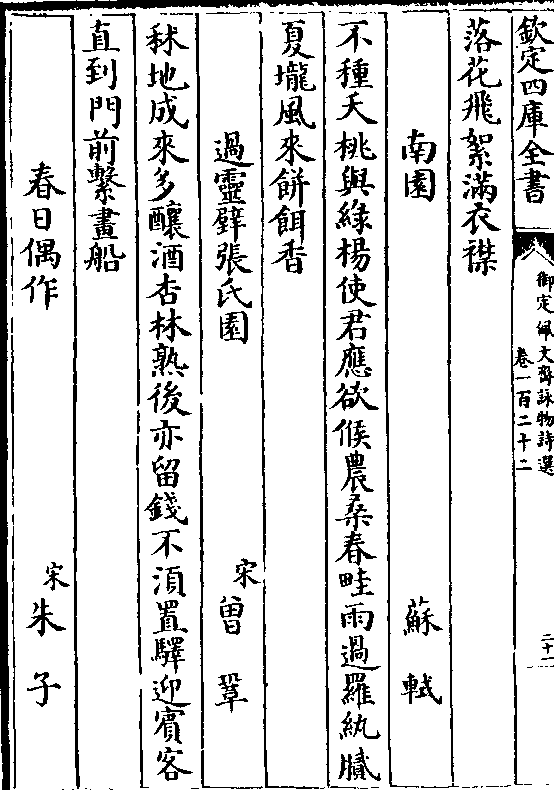 欽定四庫全書
御定佩文齋詠物詩選
卷一百二十二
二十一
落花飛絮滿衣襟
南園 蘇軾
不種夭桃與綠楊使君應欲候農桑春畦雨過羅紈膩
夏壠風來餅餌香
過靈壁張氏園 宋曾鞏
秫地成來多釀酒杏林熟後亦留錢不須置驛迎賓客
直到門前繫畫船
春日偶作 宋朱子